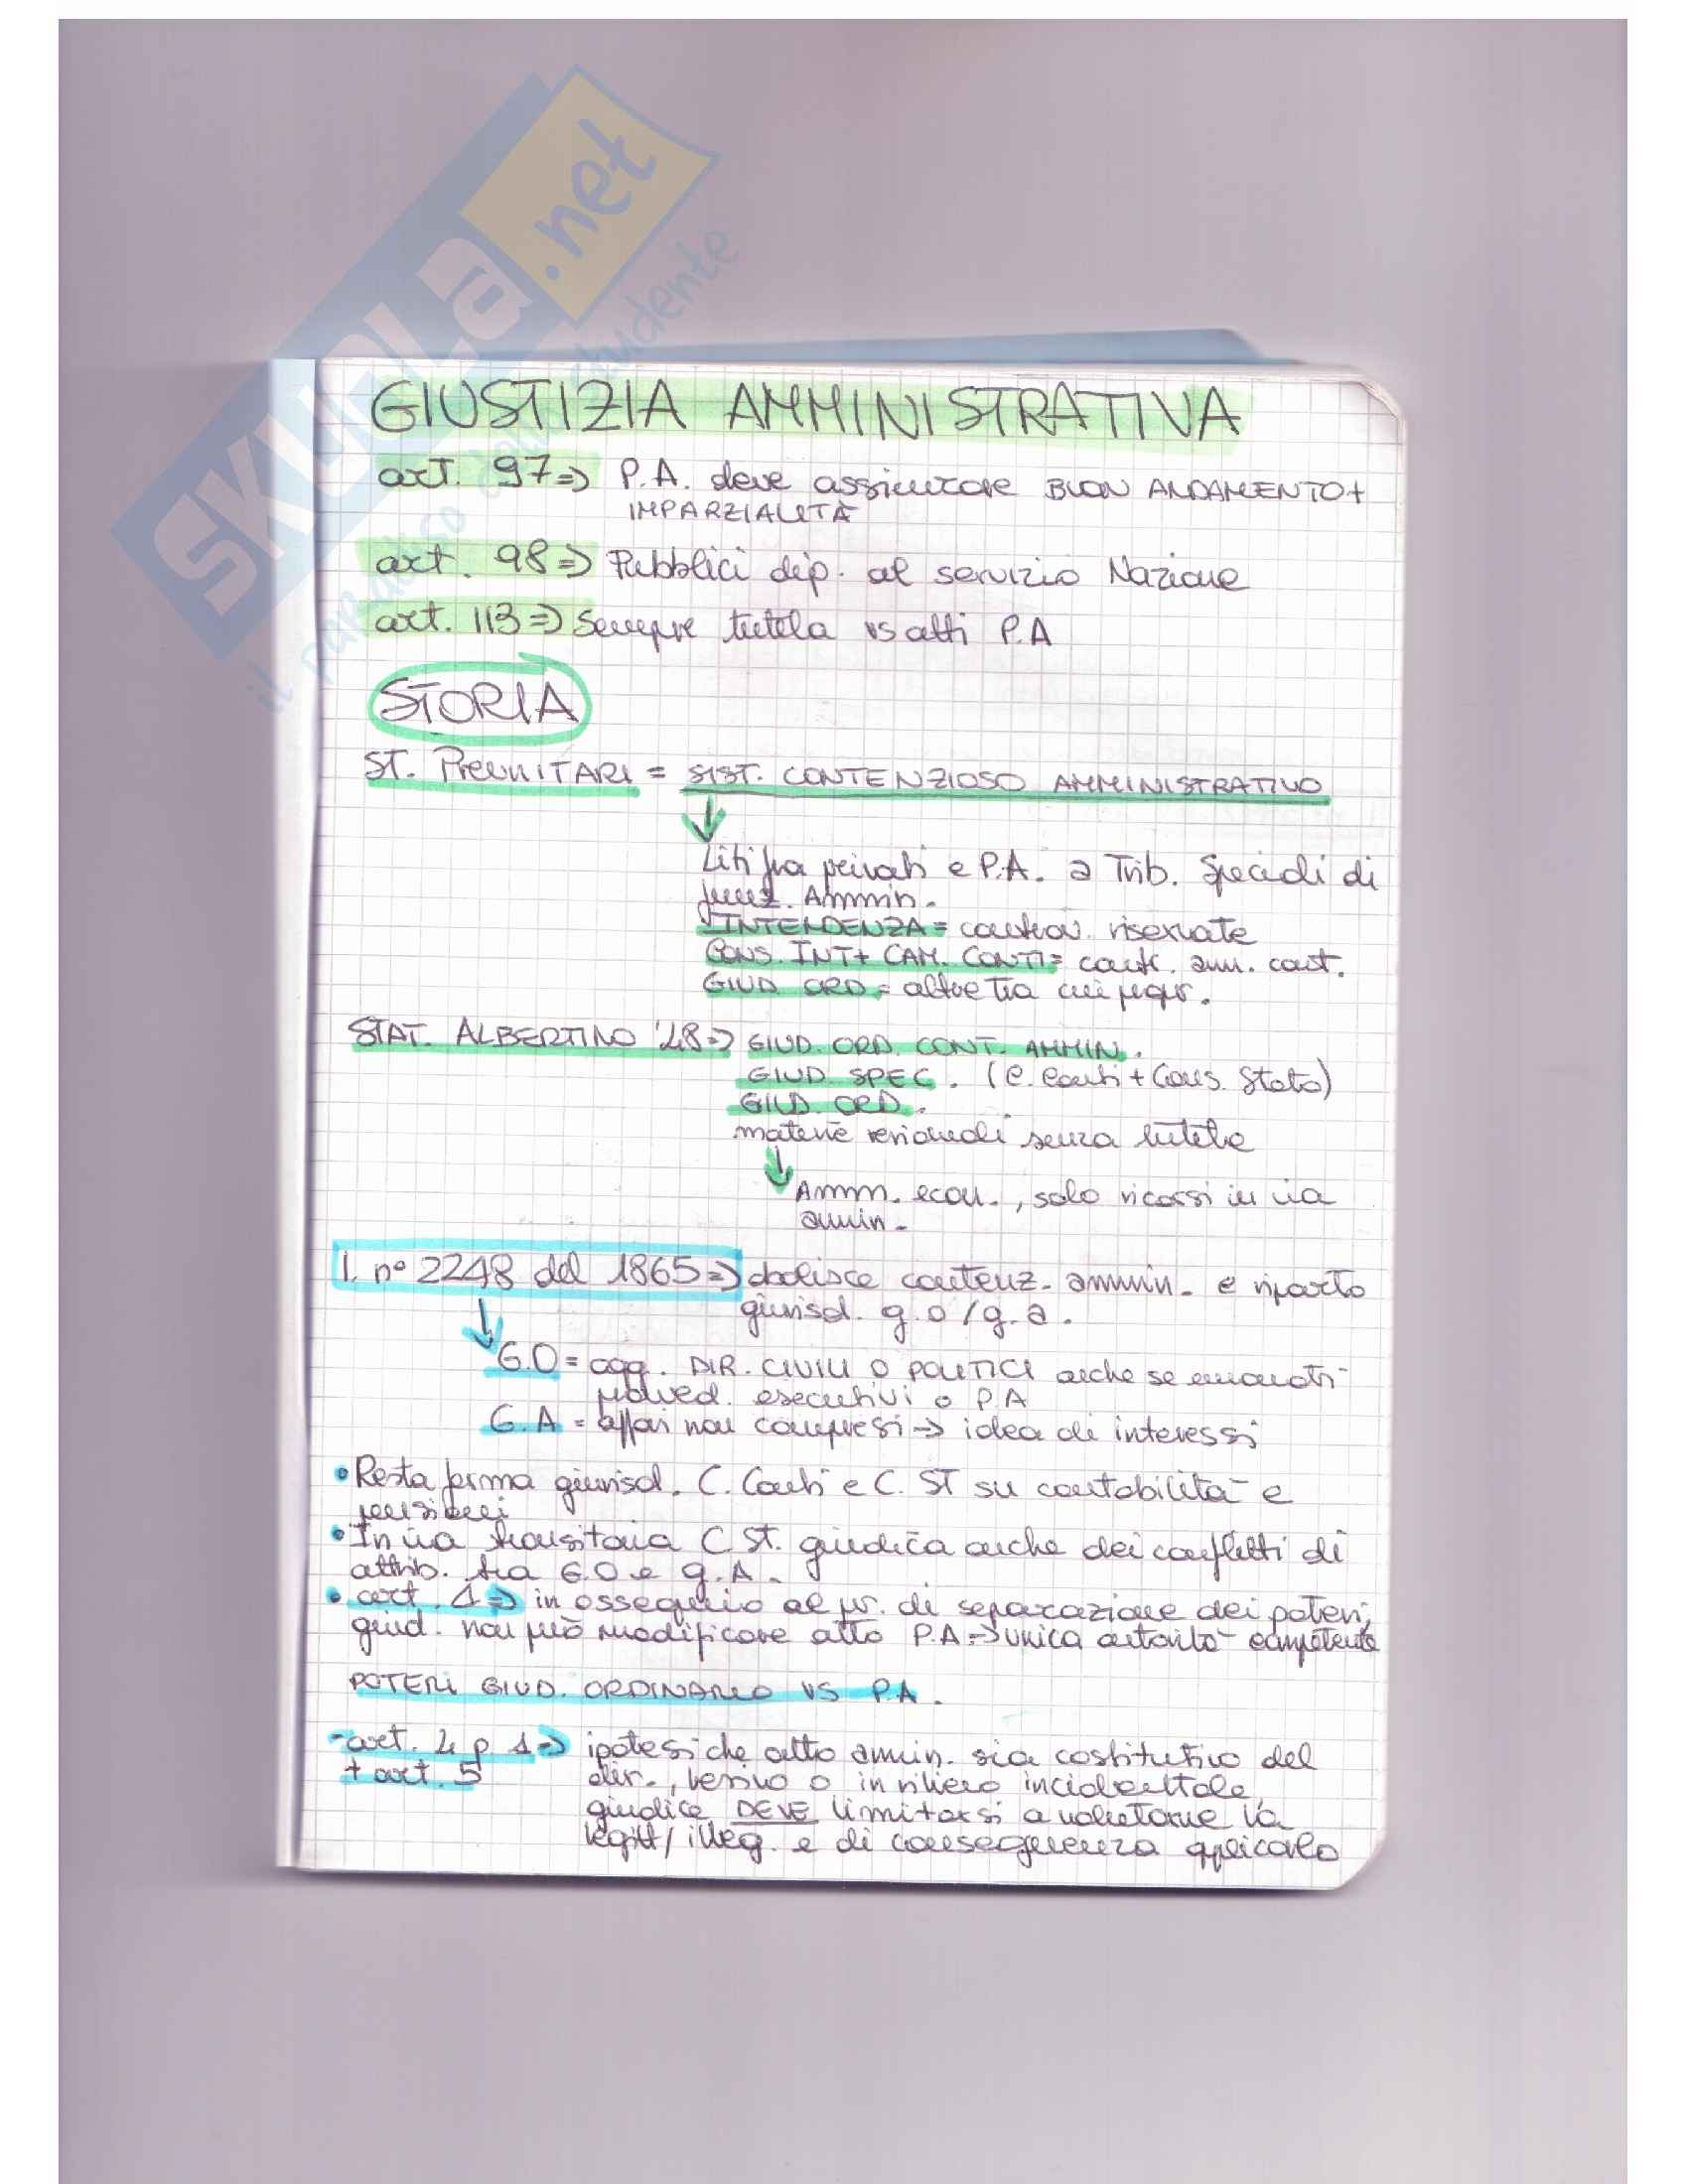 SKUOLA.net
il paradiso dello studente
GIUSTIZIA AMMINISTRATIVA
art. 97 => P.A. deve assicurare BUON ANDAMENTO +
IMPARZIALITÀ
art. 98 => Pubblici dip. al servizio Nazione
art. 113 => Sempre tutela vs atti P.A
STORIA
ST. PREUNITARI = SIST. CONTENZIOSO AMMINISTRATIVO
Liti fra privati e P.A. a Trib. Speciali di
Ammin.
INTENDENZA = controv. riservate
CONS. INT + CAM. CONTI = contr. amm. cont.
GIUD. ORD = altre tra
STAT. ALBERTINO '48 => GIUD. ORD. CONT. AMMIN.
GIUD. SPEC. (C. Conti + Cons. Stato)
GIUD. ORD.
materie residuali senza tutela
Amm. econ., solo ricorsi in via
ammin.
l. n° 2248 del 1865 => abolisce contenz. ammin. e riparto
giurisd. g.o/g.a.
G.O = ogg. DIR. CIVILI O POLITICI anche se emanati
provved. esecutivi o P.A
G.A = affari non compresi -> idea di interessi
• Resta ferma giurisd. C. Conti e C. ST su contabilità e
pensioni
• In via transitoria C. St. giudica anche dei conflitti di
attrib. tra G.O e g.A.
• art. 4 => in ossequio al pr. di separazione dei poteri,
giud. non può modificare atto P.A => unica autorità competente
POTERI GIUD. ORDINARIO VS P.A.
- art. 4 p 1 => ipotesi che atto ammin. sia costitutivo del
+ art. 5 dir., lesivo o in rilievo incidentale,
giudice DEVE limitarsi a valutarne la
legitt/illeg. e di conseguenza applicarlo